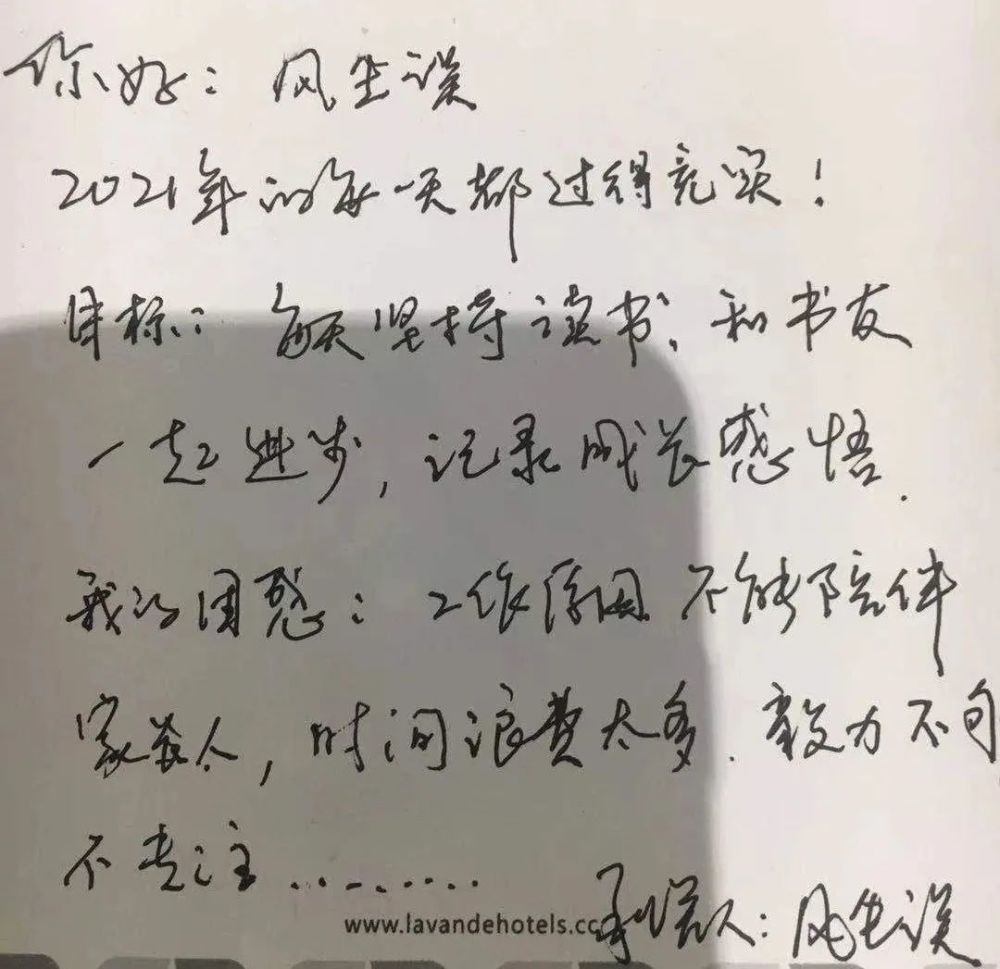 你好：风生误
2021年的每一天都过得充实！
目标：每天坚持读书、和书友
一起进步，记录成长感悟.
我的困惑：工作原因不能陪伴
家人，时间浪费太多.毅力不
不专注........
www.lavandehotels.cc
承诺人：风生误